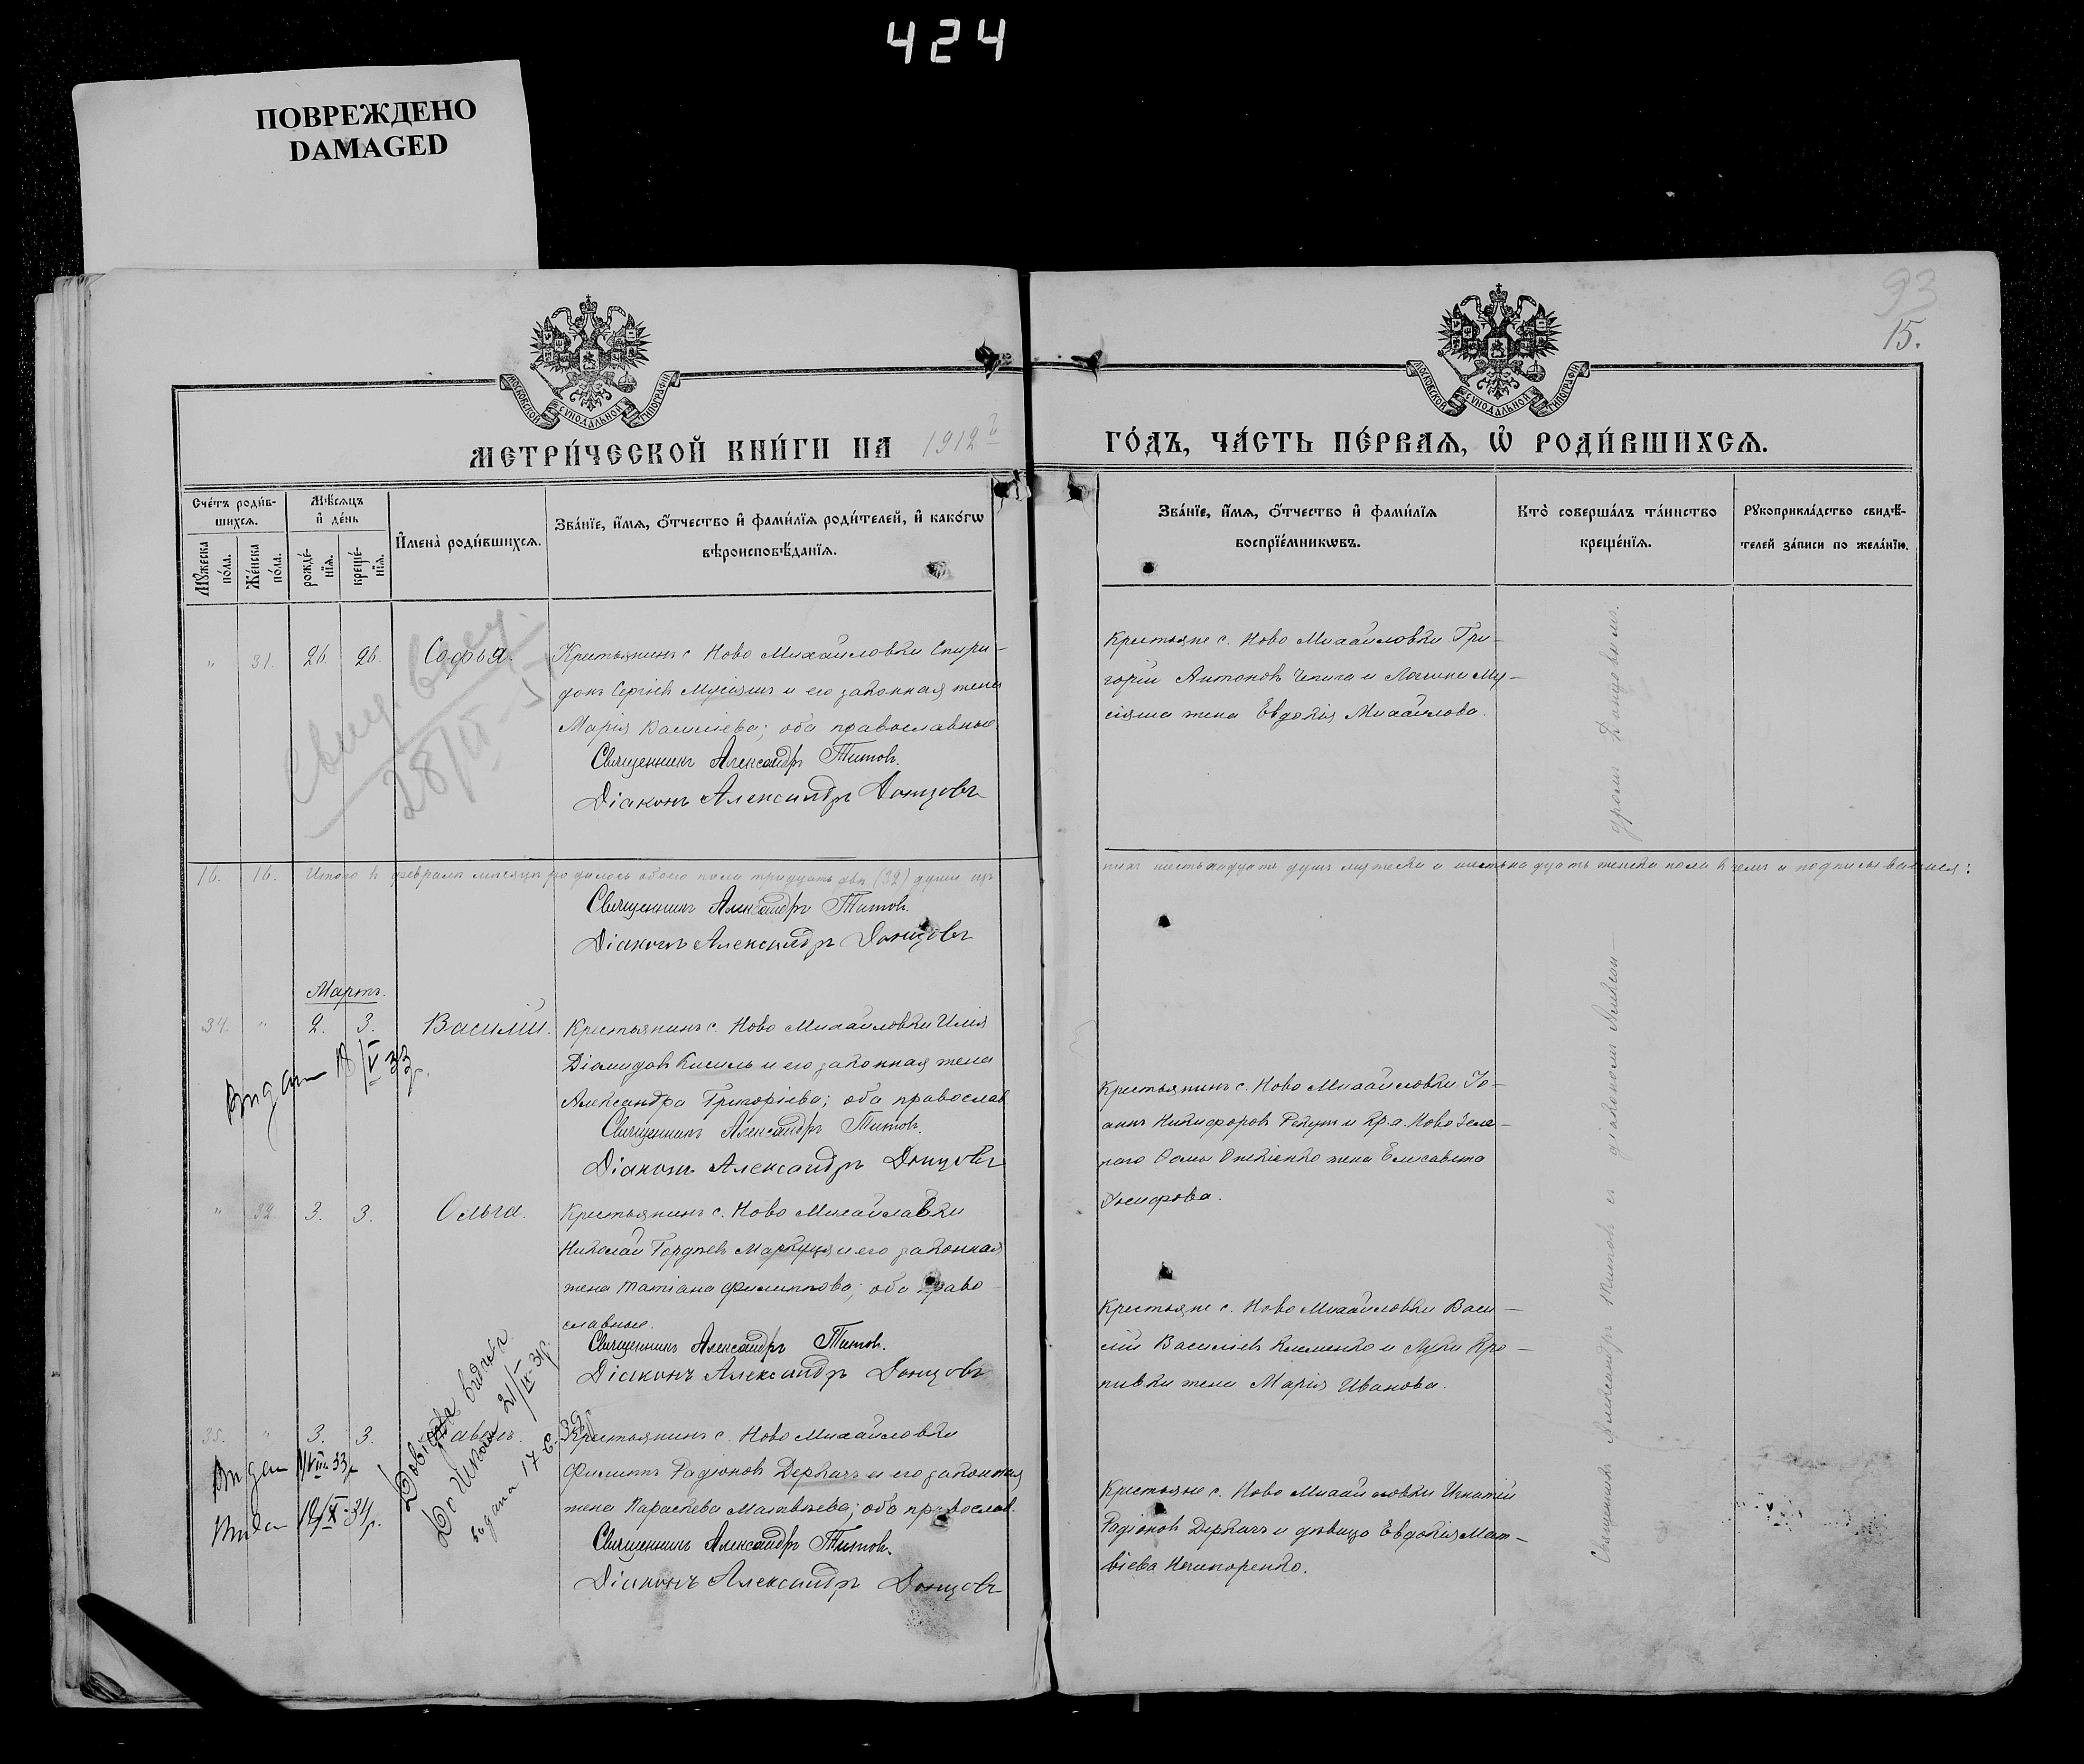 424
ПОВРЕЖДЕНО
DAMAGED
93
15.
МОСКОВСКОЙ СѴНОДАЛЬНОЙ ТИПОГРАФІИ
МОСКОВСКОЙ СѴНОДАЛЬНОЙ ТИПОГРАФІИ
МЕТРИ́ЧЕСКОЙ КНИ́ГИ НА 1912 й
ГО́ДЪ, ЧА́СТЬ ПЕ́РВАѦ, Ѡ҆ РОДИ́ВШИХСѦ.
Сче́тъ роди́в-
шихсѧ.
Мѣ́сѧцъ
и҆ де́нь
Мꙋ́жеска
по́ла.
Же́нска
по́ла.
рожде́-
нїѧ.
креще́-
нїѧ.
И҆мена̀ роди́вшихсѧ.
Зва́нїе, и҆́мѧ, ѻ҆́тчество и҆ фами́лїѧ роди́телей, и҆ како́гѡ
вѣроисповѣ́данїѧ.
Зва́нїе, и҆́мѧ, ѻ҆́тчество и҆ фами́лїѧ
воспрїе́мникѡвъ.
Кто̀ соверша́лъ та́инство
креще́нїѧ.
Рꙋкоприкла́дство свидѣ́-
телей за́писи по жела́нїю.
" 31. 26. 26. Софья.
28/II-5
Крестьянинъ с. Ново Михайловки Спири-
донъ Сергіевъ Мусіяшъ и его законная жена
Марія Васильева; оба православные
Священникъ Александръ Титовъ.
Діаконъ Александръ Донцовъ
Крестьяне с. Ново Михайловки Гри-
горій Антоновъ Чепига и Му-
сіяша жена Евдокія Михайлова.
16. 16. Итого въ февралѣ мѣсяцѣ родилось обоего пола тридцать двѣ (32) души изъ
нихъ шестьнадцать душъ мужеска и шестьнадцать женска пола въ чемъ и подписываемся:
Священникъ Александръ Титовъ.
Діаконъ Александръ Донцовъ
Мартъ.
34. " 2. 3. Василій.
18/V 33 р.
Крестьянинъ с. Ново Михайловки Илія
Діамидовъ Кисиль и его законная жена
Александра Григоріева; оба православ
Священникъ Александръ Титовъ.
Діаконъ Александръ Донцовъ
Крестьянинъ с. Ново Михайловки Іо-
аннъ Никифоровъ и кр. д. Ново Зеле-
наго Ѳомы жена Елисавета
Іосифова.
" 32. 3. 3. Ольга.
Крестьянинъ с. Ново Михайлавки
Николай Гордѣевъ Маркуця и его законная
жена Татіана Филиппова; оба право-
славные.
Священникъ Александръ Титовъ.
Діаконъ Александръ Донцовъ
Крестьяне с. Ново Михайловки Васи-
лій Васильевъ Клименко и Луки Кро-
пивки жена Марія Иванова.
35. " 3. 3. Павелъ.
Видан 1/VIII 33 р
12/X-34 р.
Довідка видана
До школи 21/II-31 р.
видана
Крестьянинъ с. Ново Михайловки
Филиппъ Радіоновъ Деркачъ и его законная
жена Параскева Матвѣева; оба православ.
Священникъ Александръ Титовъ.
Діаконъ Александръ Донцовъ
Крестьяне с. Ново Михайловки Игнатій
Радіоновъ Деркачъ и дѣвица Евдокія Мат-
віева Нечипоренко.
Священникъ Александръ Титовъ съ діакономъ Алексан-
дромъ Донцовымъ.